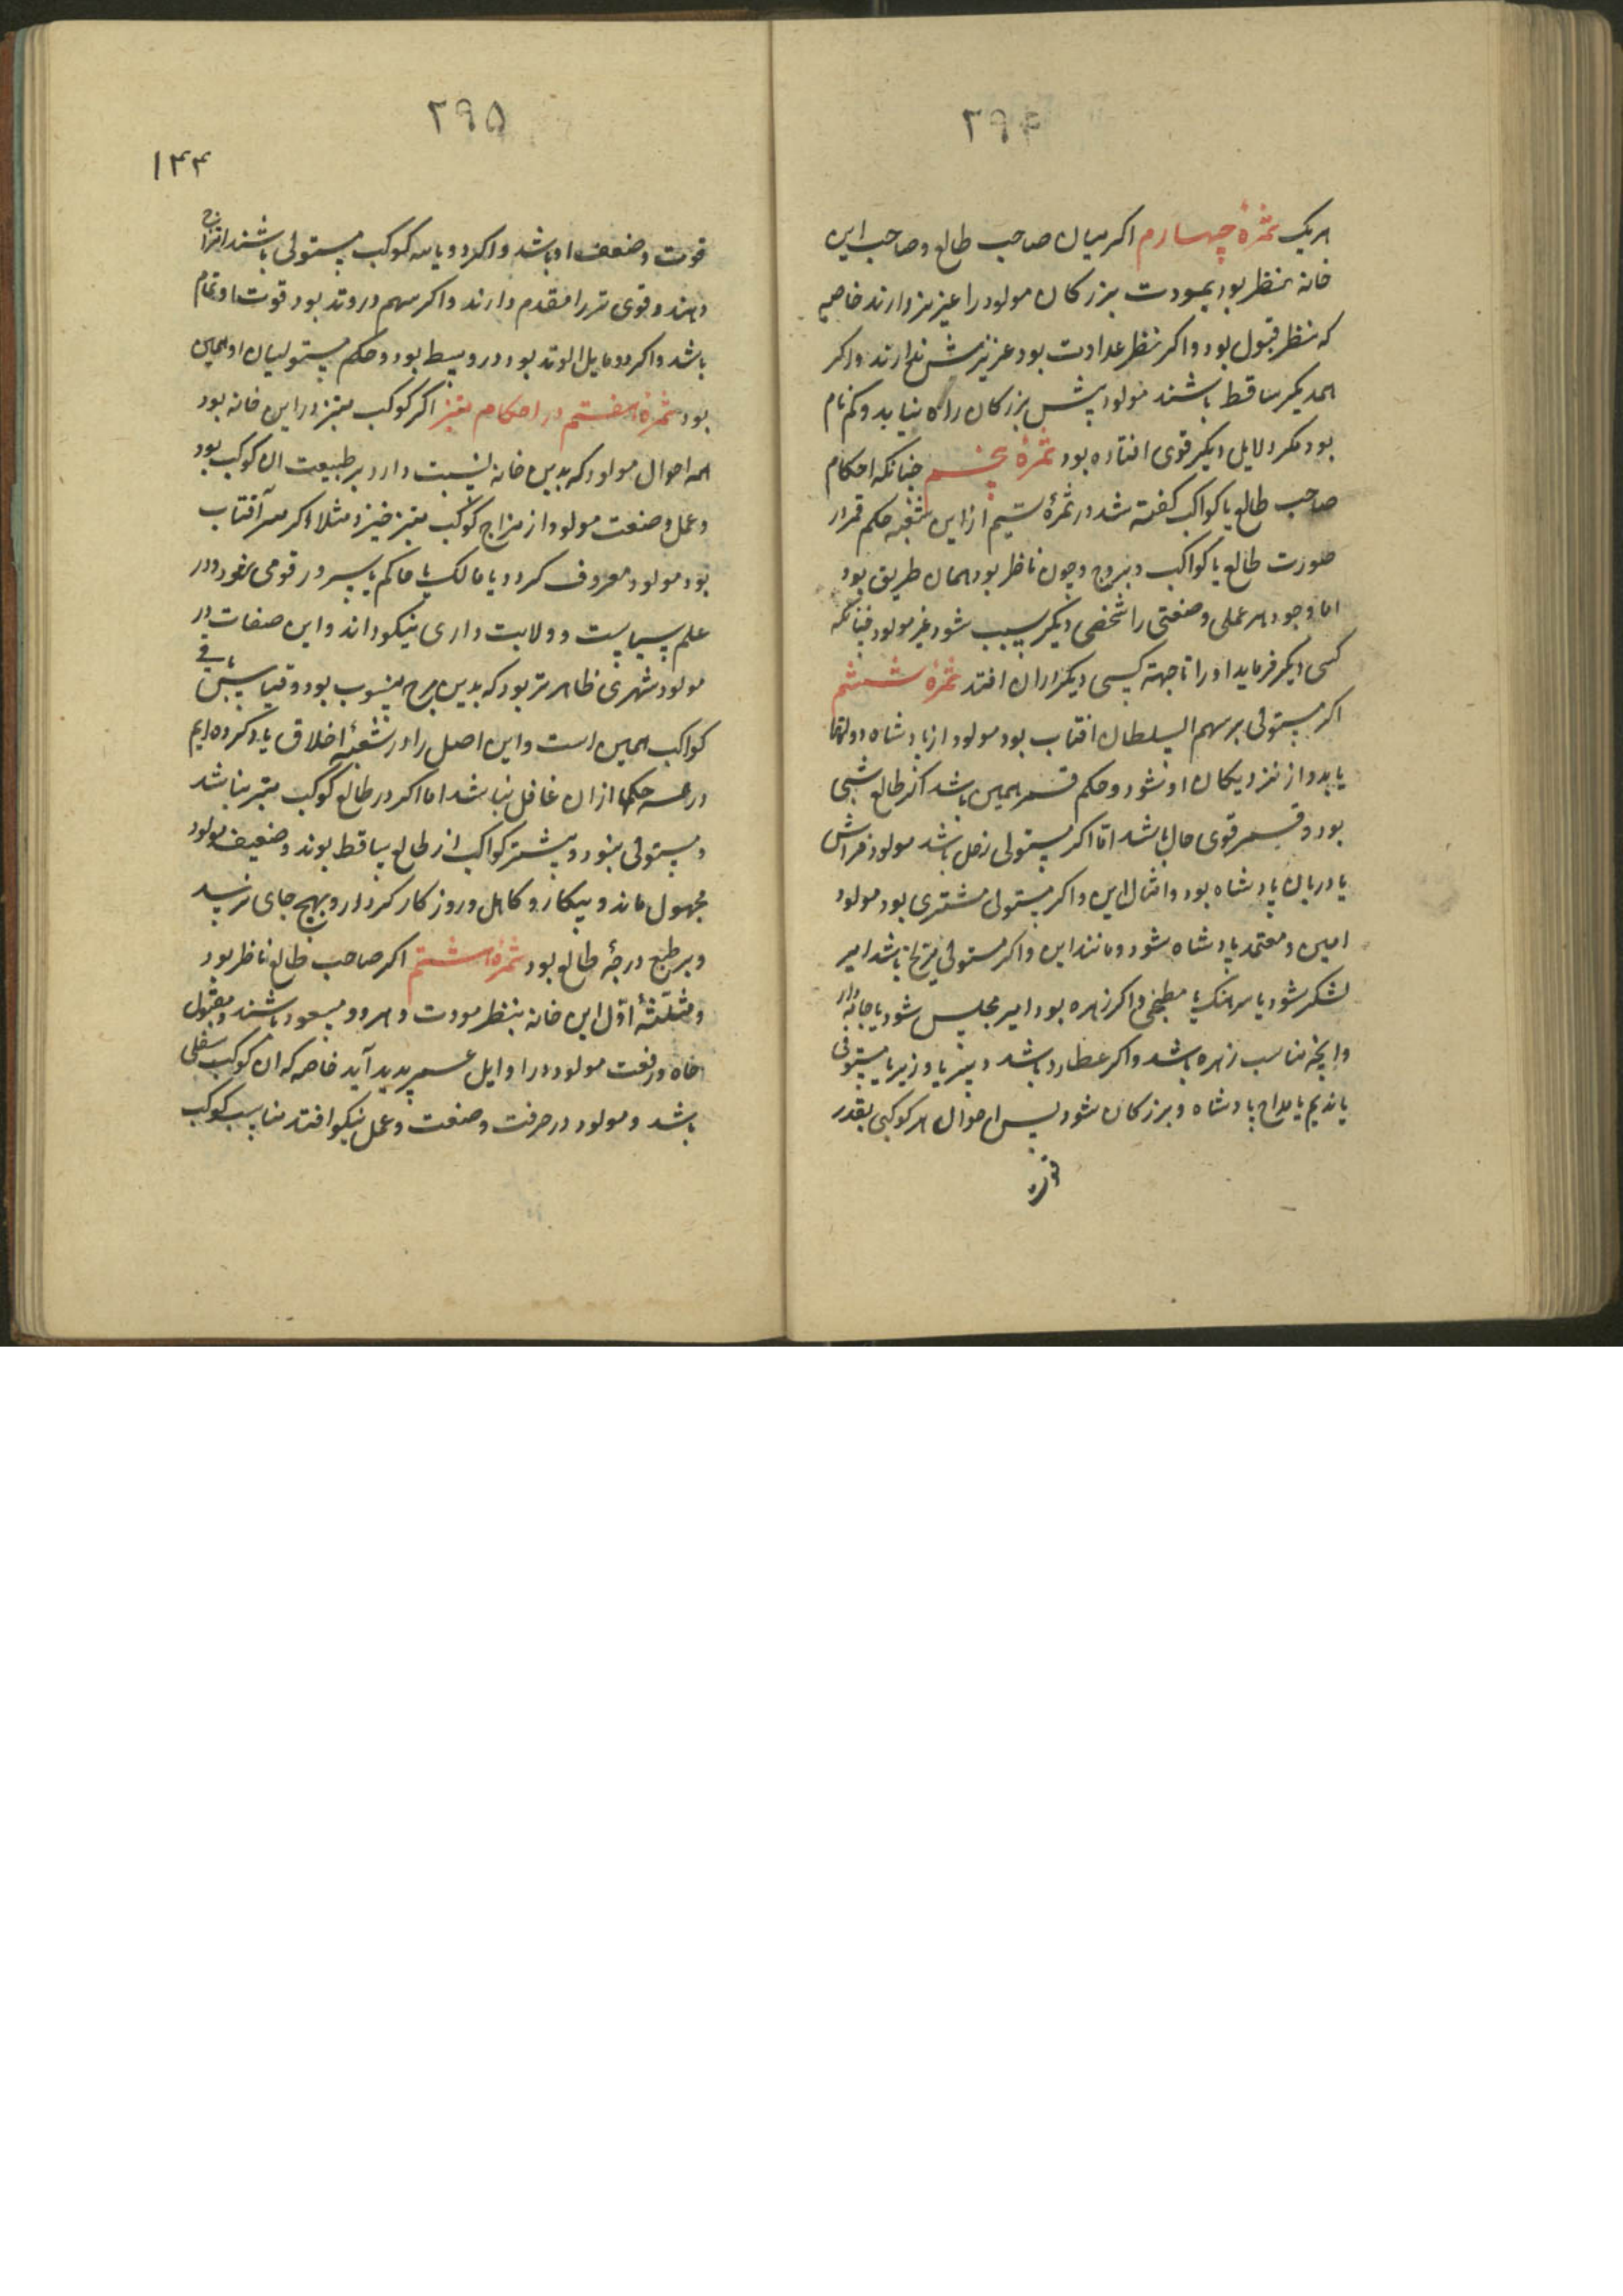 ۲۹۴
هریک ثمرهٔ چهارم اکر میان صاحب طالع وصاحب این
خانه نظر بود بمودت بزرکان مولود را عزیز دارند خاصه
که نظر قبول بود واکر نظر عداوت بود عزیزش ندارند واکر
ازهمدیکر ساقط باشند مولود پیش بزرکان راه نیابد وکم نام
بود مکر دلایل دیکر قوی افتاده بود ثمرهٔ پنجم چنانکه احکام
صاحب طالع با کواکب کفته شد در ثمرهٔ سیم از این شعبه حکم قمر از
صورت طالع با کواکب وبروج وچون ناظر بود همان طریق بود
اما وجود هر عملی وصنعتی را شخصی دیکر سبب شود غیر مولود چنانکه
کسی دیکر فرماید او را تا جهة کسی دیکر در ان افتد ثمرهٔ ششم
اکر مستولی بر سهم السلطان افتاب بود مولود از پادشاه دولتها
یابد واز نزدیکان او شود وحکم قمر همین باشد اکر طالع شبی
بود وقمر قوی حال باشد اما اکر مستولی زحل باشد مولود فراش
یا دربان پادشاه بود وامثال این واکر مستولی مشتری بود مولود
امین ومعتمد پادشاه شود ومانند این واکر مستولی مریخ باشد امیر
لشکر شود یا سرهنک یا مطبخی واکر زهره بود امیر مجلس شود یا جامه دار
وانچه مناسب زهره باشد واکر عطارد باشد دبیر یا وزیر یا مستوفی
یا ندیم یا مداح پادشاه وبزرکان شود پس احوال هر کوکبی بقدر
قوت
۲۹۵
۱۴۴
قوت وضعف او باشد واکر دو یا سه کوکب مستولی باشند امتزاج
دهند وقوی تر را مقدم دارند واکر سهم در وتد بود قوت او تمام
باشد واکر در مایل الوتد بود در وسط بود وحکم مستولیان او همین
بود ثمرهٔ هفتم در احکام مبتز اکر کوکب مبتز در این خانه بود
همه احوال مولود که بدین خانه نسبت دارد بر طبیعت ان کوکب بود
وعمل وصنعت مولود از مزاج کوکب مبتز خیزد مثلا اکر مبتز آفتاب
بود مولود معروف کردد یا مالک یا حاکم یا سرور قومی شود ودر
علم سیاست وولایت داری نیکو داند واین صفات در
مولود شهری ظاهرتر بود که بدین برج منسوب بود وقیاس باقی
کواکب همین است واین اصل را در شعبهٔ اخلاق یاد کرده ایم
در همه حکمها از ان غافل نباشد اما اکر در طالع کوکب مبتز نباشد
ومستولی نبود وبیشتر کواکب از طالع ساقط بوند وضعیف مولود
مجهول ماند وبیکار وکاهل وروز کار کردار وبهیچ جای نرسد
وبر طبع درجهٔ طالع بود ثمرهٔ هشتم اکر صاحب طالع ناظر بود
ومثلثهٔ اول این خانه بنظر مودت وهر دو مسعود باشند ومقبول
جاه ورفعت مولود در اوایل عمر پدید آید خاصه که ان کوکب سفلی
باشد ومولود در حرفت وصنعت وعمل نیکو افتد مناسب کوکب